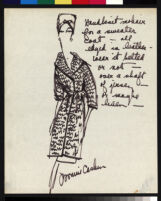 Handknit mohair
for a sweater
coat — all
edged in leather —
wear it belted
or not —
over a shaft
of jersey,
or
Bonnie Cashin